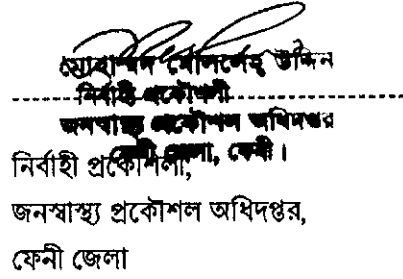 মোহাম্মদ মোসলেহ্ উদ্দিন
নির্বাহী প্রকৌশলী
জনস্বাস্থ্য প্রকৌশল অধিদপ্তর
ফেনী জেলা, ফেনী।
নির্বাহী প্রকৌশলী,
জনস্বাস্থ্য প্রকৌশল অধিদপ্তর,
ফেনী জেলা